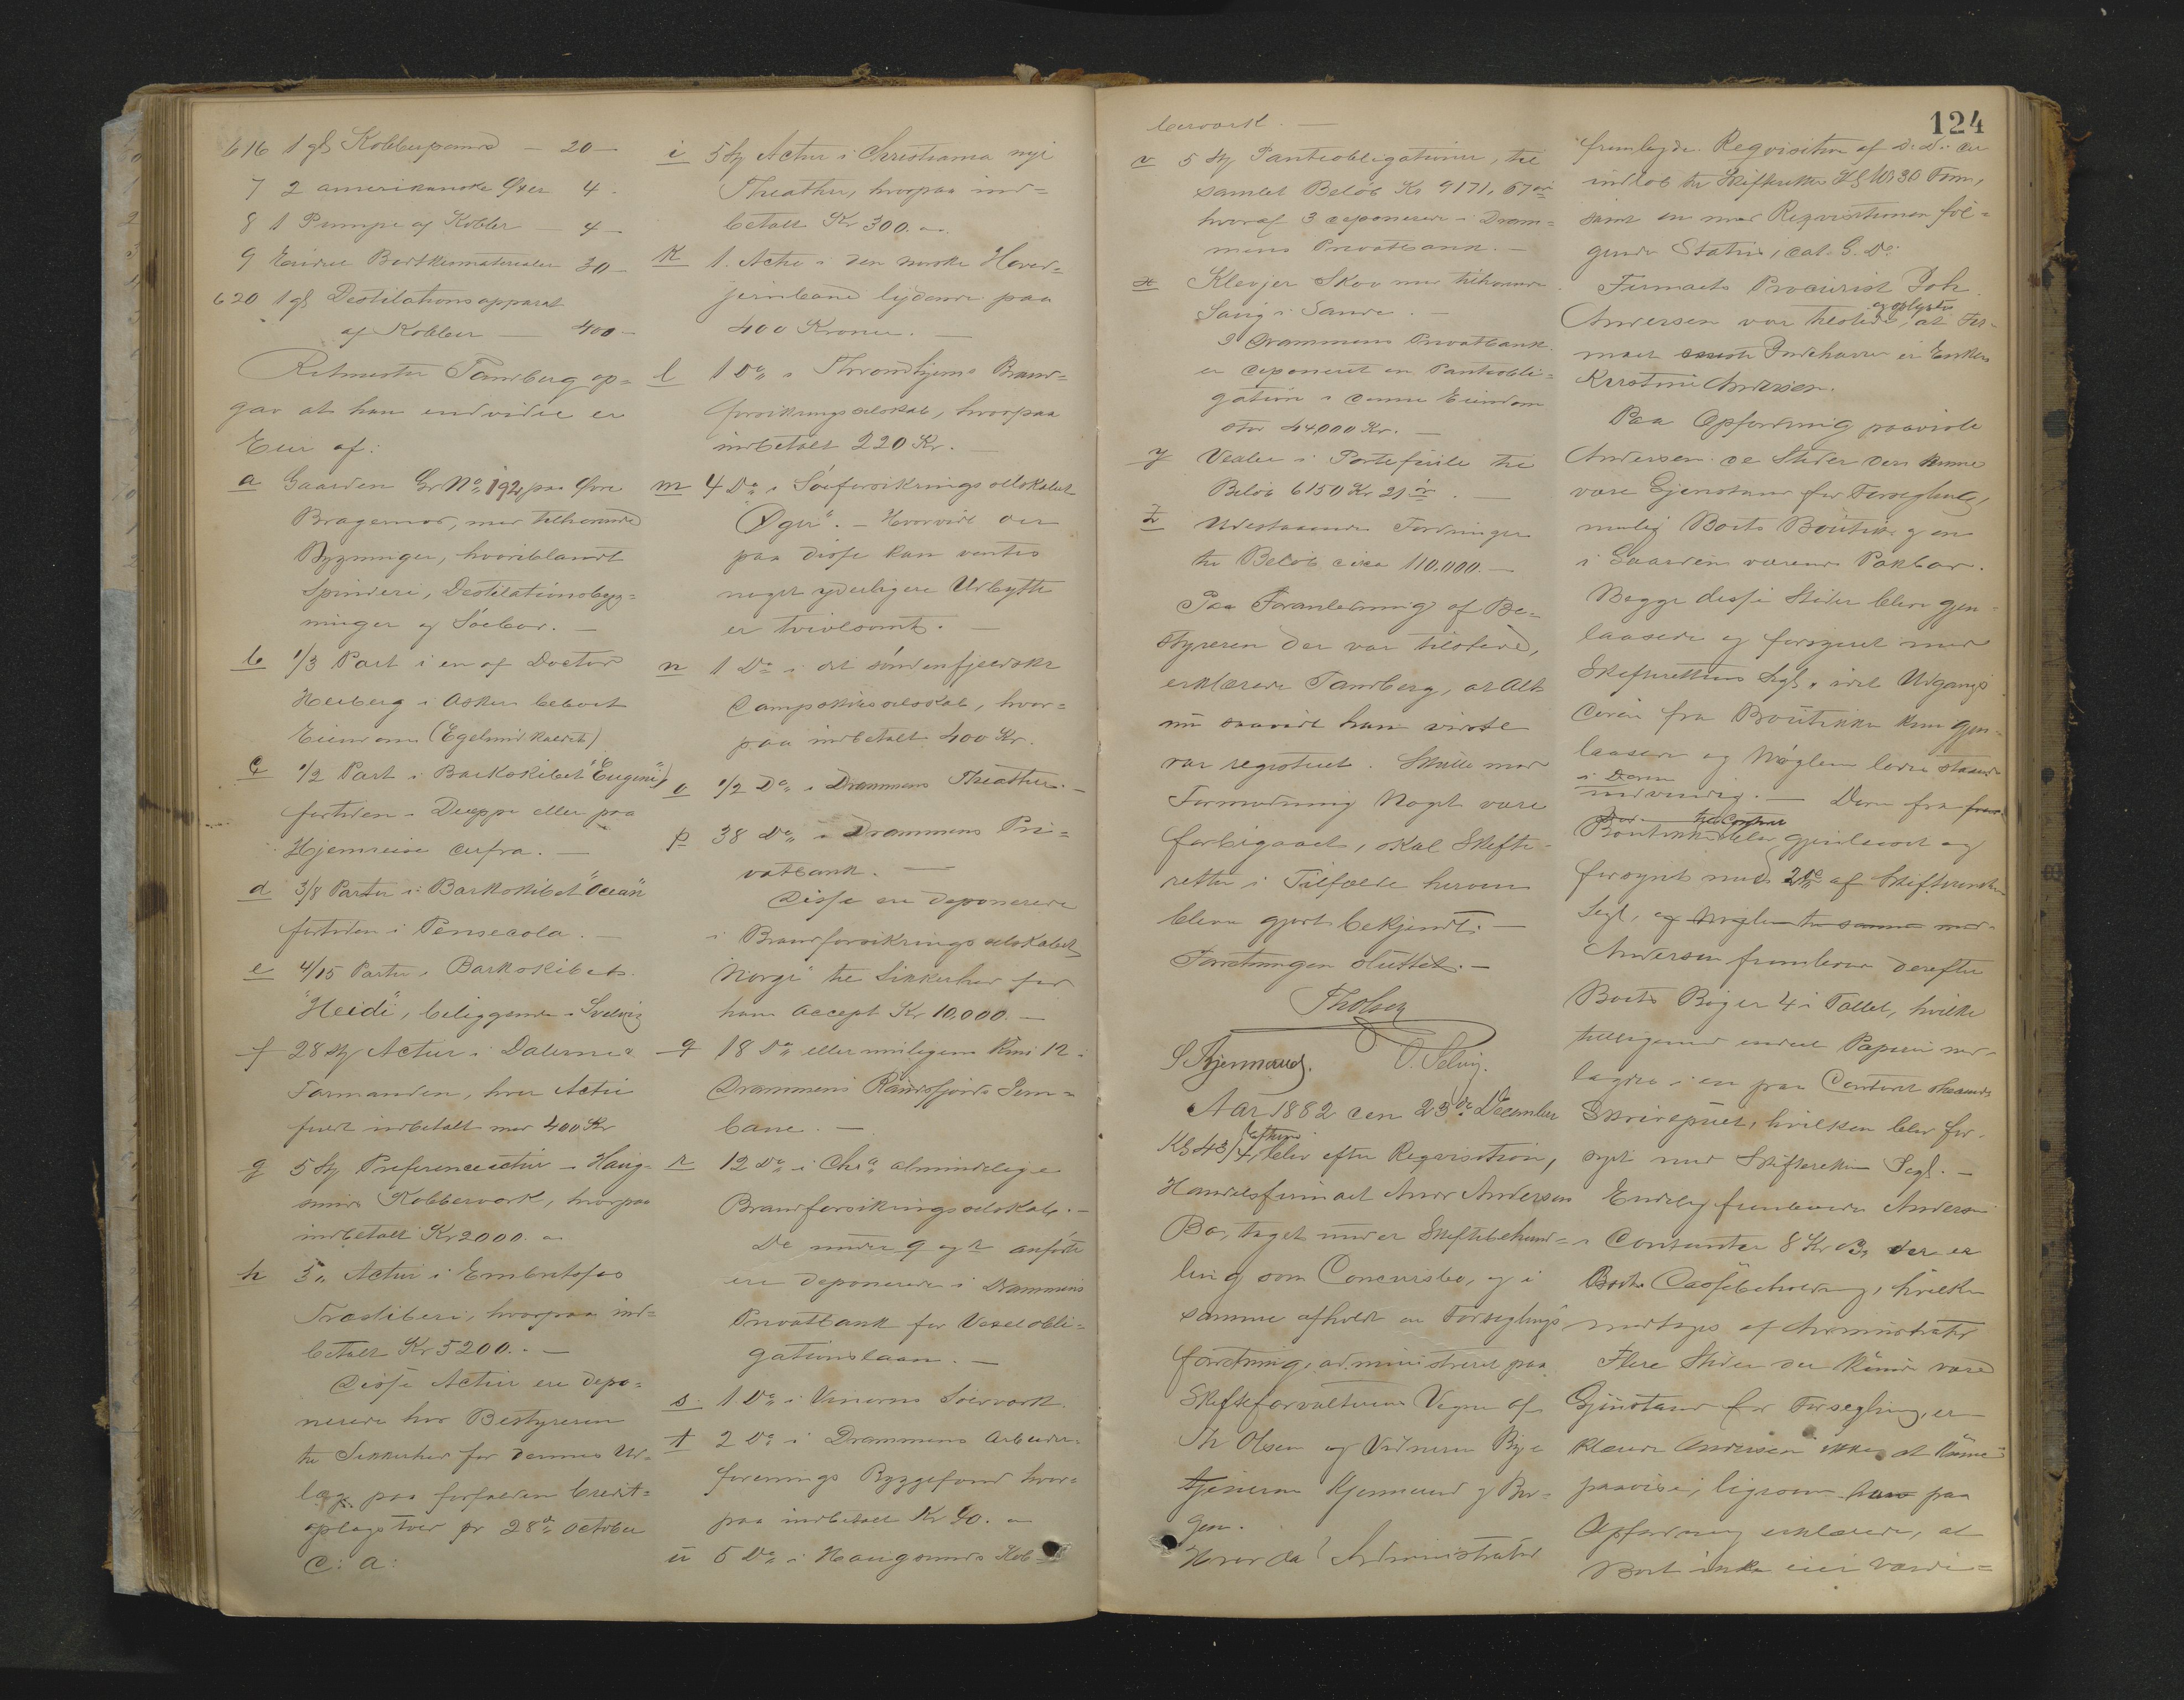 616 1 gl Kobberpande — 20 —
7 2 amerikanske Øxer 4 -
8 1 Pumpe af Kobber — 4 —
9 Endeel Bødkermaterialer 30 —
620 1 gl Destilationsapparat
af Kobber — 400 —
Ritmester Tandberg op=
gav at han endvidere er
Eier af:
a Gaarden Gr No 192 paa Øvre
Bragernes, med tilhørende
Bygninger, hvoriblandt
Spinderi, Destilationsbyg=
ninger og Søebod. —
b 1/3 Part i en af Doctor
Heiberg i Asker beboet
Eiendom (Egelund kaldet)
c 1/2 Part i Barkskibet "Eugenie"
fortiden i Dieppe eller paa
Hjemreise derfra. —
d 3/8 Parter i Barkskibet "Ocean"
fortiden i Pensacola. —
e 4/15 Parter i Barkskibet
"Heidi", beliggende i Svelvig
f 28 St Actier i Dalerne &
Formanden, hver Actie
fuldt indbetalt med 400 Kr
g 5 St Preferenceactier i Haug=
sunds Kobberværk, hvorpaa
indbetalt Kr 2000. "
h 5 " Actier i Embretsfos
Træsliberi, hvorpaa ind=
betalt Kr 5200. . —
Disse Actier ere depo=
nerede hos Bestyreren
til Sikkerhed for dennes Ud=
læg paa forfalden Credit=
oplagstold pr 28de October
d: A:
i 5 St Actier i Christiania nye
Theather, hvorpaa ind=
betalt Kr 300. "
k 1. Actie i den norske Hoved=
jernbane lydende paa
400 Kroner. —
l 1 Do i Throndhjems Brand=
forsikringsselskab, hvorpaa
indbetalt 220 Kr. —
m 4 Do i Søeforsikringsselskabet
"Øger". — Hvorvidt der
paa disse kan ventes
noget yderligere Udbytte
er tvivlsomt. —
n 1 Do i det søndenfjeldske
Dampskibsselskab, hvor=
paa indbetalt 400 Kr.
o 1/2 Do i Drammens Theather. —
p 38 Do i Drammens Pri=
vatbank. —
Disse ere deponerede
i Brandforsikringsselskabet
"Norge" til Sikkerhed for
hans Accept Kr 10,000. —
q 18 Do eller muligens kun 12 i
Drammens Randsfjords Jern=
bane. —
r 12 Do i Chra almindelige
Brandforsikringsselskab. —
De under q og r anførte
ere deponerede i Drammens
Privatbank for Vexelobli=
gationslaan. —
s 1 Do i Sølvværk.
t 2 Do i Drammens Arbeider=
forenings Byggefond hvor=
paa indbetalt Kr 90. "
u 5 Do i Haugsunds Kob=
124
berværk. —
v 5 St Pantobligationer, til
samlet Beløb Kr 9171, 67 ør
hvoraf 3 deponerede i Dram=
mens Privatbank. —
x Klevjer Skov med tilhørende
Saug i Sande. —
I Drammens Privatbank
er deponeret en Pantobli=
gation i denne Eiendom
stor 44,000 Kr. —
y Vexler i Portefeuile til
Beløb 6150 Kr 21 ør. —
z Udestaaende Fordringer
til Beløb circa 110,000. —
Paa Foranledning af Be=
styreren der var tilstede,
erklærede Tandberg, at Alt
nu saavidt han vidste
var registreret. Skulle mod
Formodning Noget være
forbigaaet, skal Skifte=
retten i Tilfælde herom
blive gjort bekjendt. —
Forretningen sluttet. —
Th Olsen
S. Kjennerud. O. Selvig.
Aar 1882 den 23de December
Kl 4 3/4 Efterm blev efter Reqvisition,
Handelsfirmaet Andr Andersens
Bo, taget under Skiftebehand=
ling som Concursbo, og i
samme afholdt en Forseglings
forretning, administreret paa
Skifteforvalterens Vegne af
Th Olsen og Vidnerne Bye
tjenerne Kjennerud og Ber=
gen.
Hvorda? Administrator
fremlagde Reqvisition af D. D. der
indløb til Skifteretten Kl 10. 30 Form,
samt en med Reqvisitionen føl=
gende Status, dat. G. Do:
Firmaets Procurist Joh.
Andersen var tilstede og oplyste, at Fir=
maets eneste Indehaver er Enken
Kirstine Andersen.
Paa Opfordring paaviste
Andersen de Steder der kunne
være Gjenstand for Forsegling,
nemlig Boets Boutik og en
i Gaarden værende Pakbod.
Begge disse Steder bleve gjen=
laasede og forsynet med
Skifterettens Segl, idet Udgangs
døren fra Boutikken kun gjen=
laasedes og Nøglen lodes staaende
i Døren
indvendig. — Døren fra
Boutikken til Contoret blev gjenlaaset og
forsynt med 2de af Skifterettens
Segl, og Nøglen til samme med-
Andersen fremleverede derefter
Boets Bøger 4 i Tallet, hvilke
tilligemed endeel Papirer ned=
lagdes i en paa Contoret staaende
Skrivepult, hvilken blev for=
synt med Skifterettens Segl. —
Endelig fremleverede Andersen
i Contanter 8 Kr 03, der er
Boets Cassebeholdning, hvilken
modtoges af Administrator
Flere Steder der kunde være
Gjenstand for Forsegling, er=
klærede Andersen ikke at kunne
paavise, ligesom han paa
Opfordring erklærede, at
Boet ikke eier værdi=